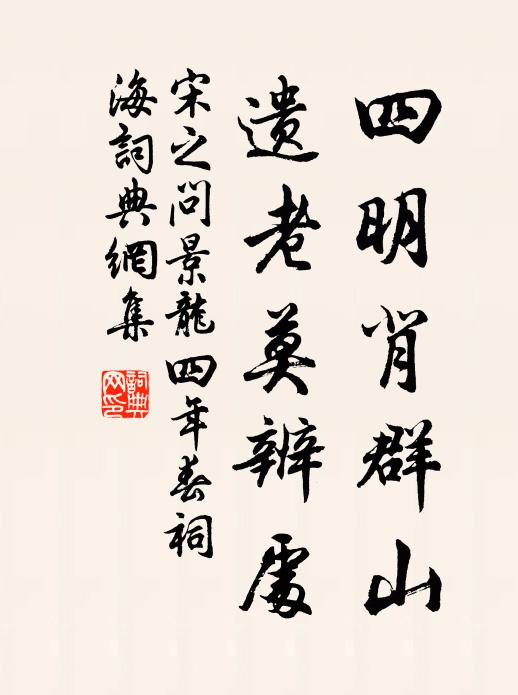 四明肖群山
遗老莫辨處
宋之问景龍四年春祠
海詞典網集
詞典
网印